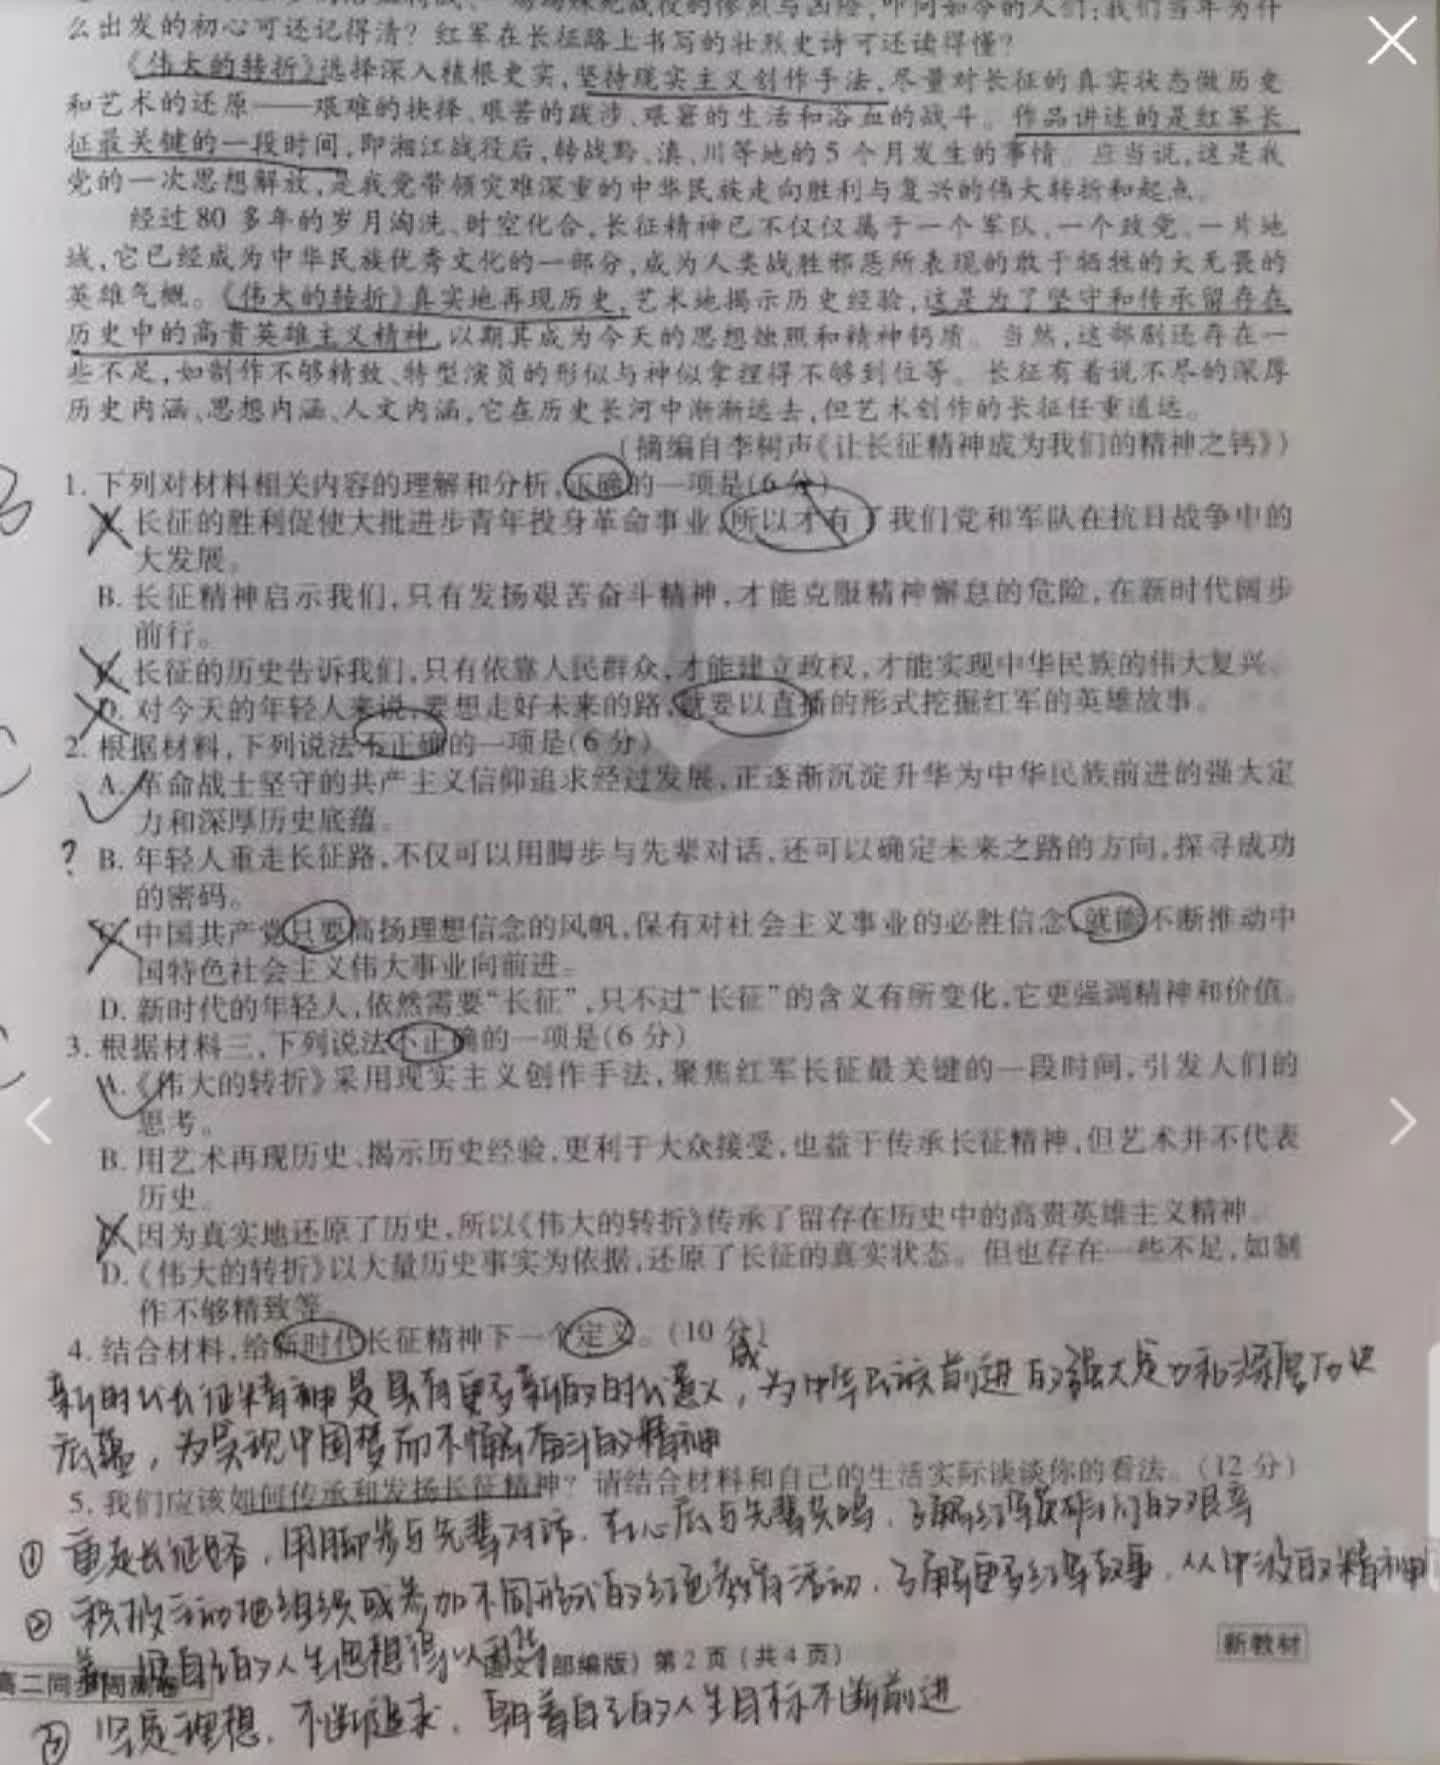 么出发的初心可还记得清？红军在长征路上书写的壮烈史诗可还读得懂？
《伟大的转折》选择深入植根史实，坚持现实主义创作手法，尽量对长征的真实状态做历史
和艺术的还原——艰难的抉择、艰苦的跋涉、艰窘的生活和浴血的战斗。作品讲述的是红军长
征最关键的一段时间，即湘江战役后，转战黔、滇、川等地的5个月发生的事情。应当说，这是我
党的一次思想解放，是我党带领灾难深重的中华民族走向胜利与复兴的伟大转折和起点。
经过80多年的岁月淘洗、时空化合，长征精神已不仅仅属于一个军队、一个政党、一片地
域，它已经成为中华民族优秀文化的一部分，成为人类战胜邪恶所表现的敢于牺牲的大无畏的
英雄气概。《伟大的转折》真实地再现历史，艺术地揭示历史经验，这是为了坚守和传承留存在
历史中的高贵英雄主义精神，以期其成为今天的思想烛照和精神钙质。当然，这部剧还存在一
些不足，如制作不够精致、特型演员的形似与神似拿捏得不够到位等。长征有着说不尽的深厚
历史内涵、思想内涵、人文内涵，它在历史长河中渐渐远去，但艺术创作的长征任重道远。
（摘编自李树声《让长征精神成为我们的精神之钙》）
1. 下列对材料相关内容的理解和分析，正确的一项是（6分）
长征的胜利促使大批进步青年投身革命事业，所以才有了我们党和军队在抗日战争中的
大发展。
B. 长征精神启示我们，只有发扬艰苦奋斗精神，才能克服精神懈怠的危险，在新时代阔步
前行。
长征的历史告诉我们，只有依靠人民群众，才能建立政权，才能实现中华民族的伟大复兴。
D. 对今天的年轻人来说，要想走好未来的路，就要以直播的形式挖掘红军的英雄故事。
2. 根据材料，下列说法不正确的一项是（6分）
A. 革命战士坚守的共产主义信仰追求经过发展，正逐渐沉淀升华为中华民族前进的强大定
力和深厚历史底蕴。
? B. 年轻人重走长征路，不仅可以用脚步与先辈对话，还可以确定未来之路的方向，探寻成功
的密码。
中国共产党只要高扬理想信念的风帆，保有对社会主义事业的必胜信念，就能不断推动中
国特色社会主义伟大事业向前进。
D. 新时代的年轻人，依然需要“长征”，只不过“长征”的含义有所变化，它更强调精神和价值。
3. 根据材料三，下列说法不正确的一项是（6分）
A.《伟大的转折》采用现实主义创作手法，聚焦红军长征最关键的一段时间，引发人们的
思考。
B. 用艺术再现历史、揭示历史经验，更利于大众接受，也益于传承长征精神，但艺术并不代表
历史。
因为真实地还原了历史，所以《伟大的转折》传承了留存在历史中的高贵英雄主义精神。
D.《伟大的转折》以大量历史事实为依据，还原了长征的真实状态。但也存在一些不足，如制
作不够精致等。
4. 结合材料，给新时代长征精神下一个定义。（10分）
新时代长征精神是具有更多新的时代意义，成为中华民族前进的强大定力和深厚历史
底蕴，为实现中国梦而不懈奋斗的精神
5. 我们应该如何传承和发扬长征精神？请结合材料和自己的生活实际谈谈你的看法。（12分）
① 重走长征路，用脚步与先辈对话，在心底与先辈共鸣，了解红军战士们的艰辛
② 积极主动地组织或参加不同形式的红色教育活动，了解更多红军故事，从中汲取精神
自己的人生思想得以
语文（部编版） 第2页（共4页）
新教材
高二同步周测卷
③ 坚定理想，不断追求，朝着自己的人生目标不断前进